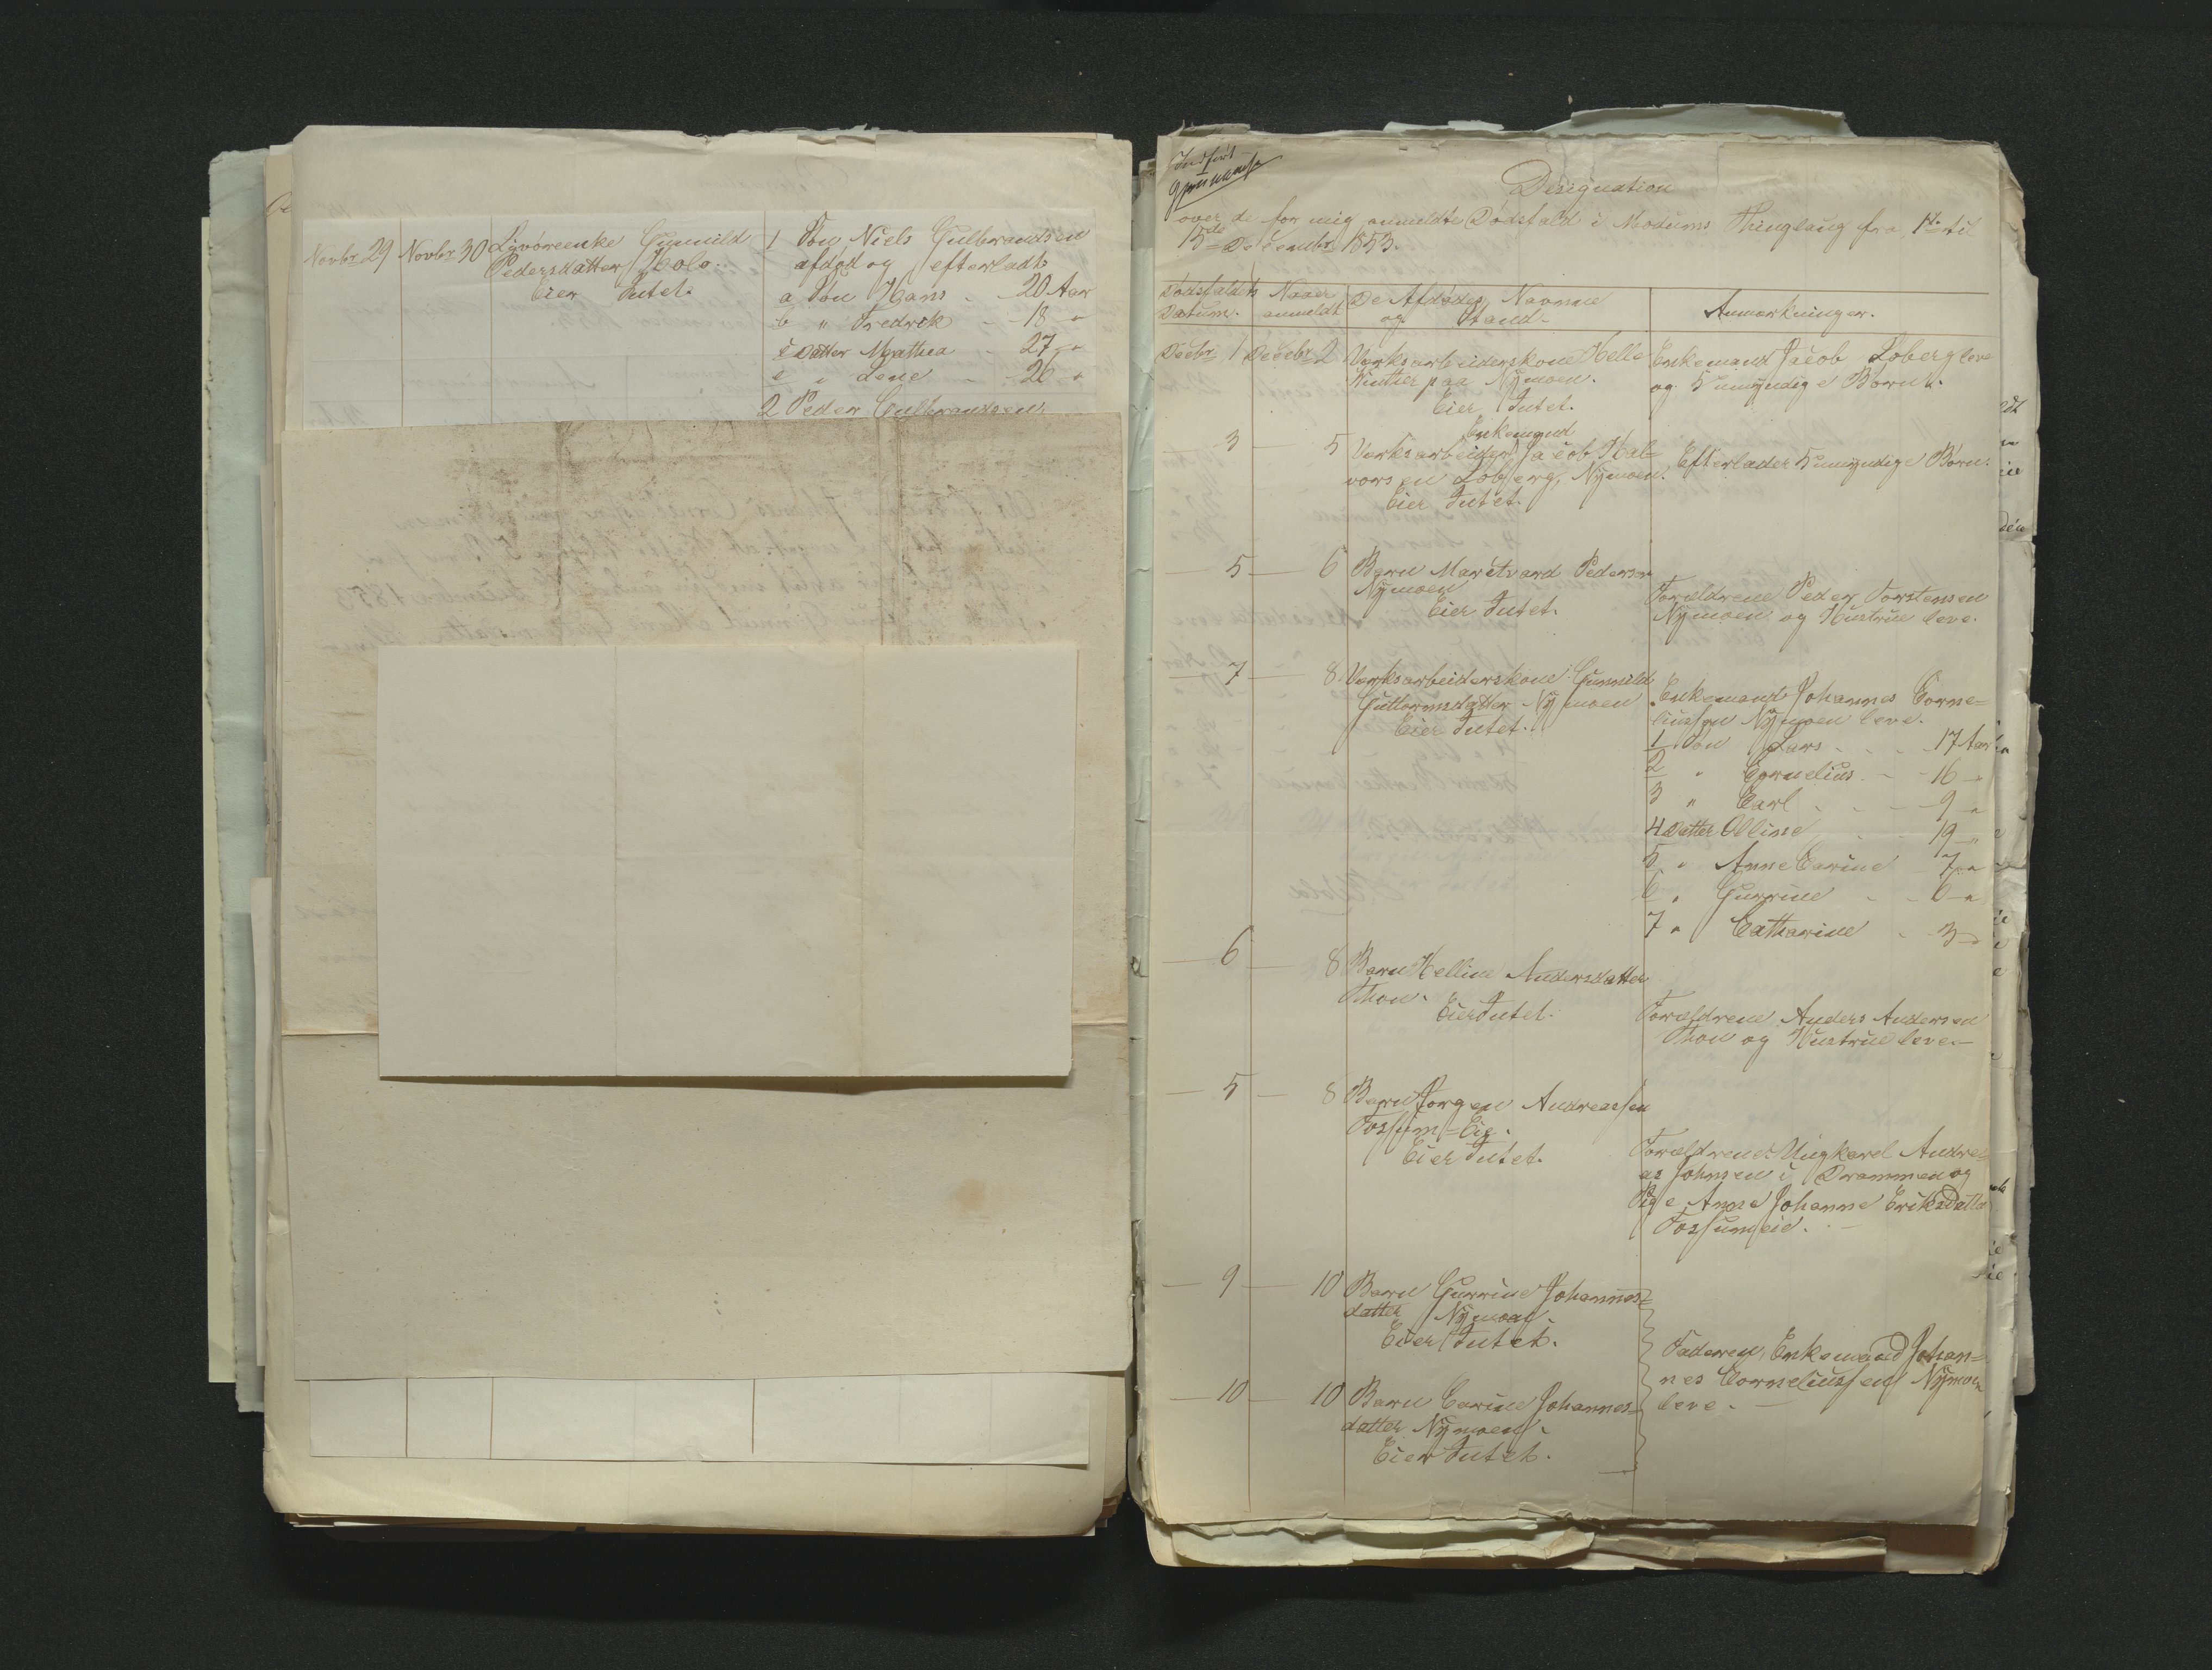 Novbr 29 Novbr. 30 Livøreenke Gunnild
Pedersdatter Holo.
Eier Intet.
1 Søn Niels Gulbrandsen
afdød og efterladt:
a Søn Hans - 20 Aar
b " Fredrik - - 18 - "
c Datter Mathea - 27 - "
e " Lene - 26 "
2 Peder Gulbrandsen
Indført
Designation
over de for mig anmeldte Dødsfald i Modums Thinglaug fra 1ste til
15de December 1853.
Dødsfaldets Datum.
Naar anmeldt
De Afdødes Navne
og Stand.
Anmærkninger.
Decbr. 1 Decebr 2 Værksarbeiderskone Helle
paa Nymoen.
Eier Intet.
Enkemand Jacob Loberg leve
og 5 umyndige Børn.
Enkemand
3 5 Værksarbeider Jacob Hal=
vorsen Loberg, Nymoen.
Eier Intet.
Efterlader 5 umyndige Børn.
5 6 Barn Pedersen
Nymoen
Eier Intet.
Forældrene Peder Torstensen
Nymoen og Hustrue leve.
7 8 Værksarbeiderskone Gunnild
Guttormsdatter Nymoen
Eier Intet.
Enkemand Johannes Corne=
liussen Nymoen leve.
1 Søn Lars - - - 17 Aar
2 " Cornelius - - 16 - "
3 " Carl - - - 9 - "
4 Datter Olline - - 19 - "
5 " Anne Carine 7 - "
6 " Gurrine - - 6 - "
7 " Catharine - 3 - "
6 8 Barn Helline Andersdatter
Thon.
Eier Intet.
Forældrene Anders Andersen
Thon og Hustrue leve. -
5 8 Barn Jørgen Andreassen
Fossum=Eie.
Eier Intet.
Forældrene Ungkarl Andre=
as Johnsen i Drammen og
Pige Anne Johanne Eriksdatter
Fossumeie. -
9 10 Barn Gurrine Johannes=
datter Nymoen.
Eier Intet.
10 10 Barn Carine Johannes=
datter Nymoen.
Eier Intet.
Faderen, Enkemand Johan=
nes Corneliussen Nymoen
leve. -